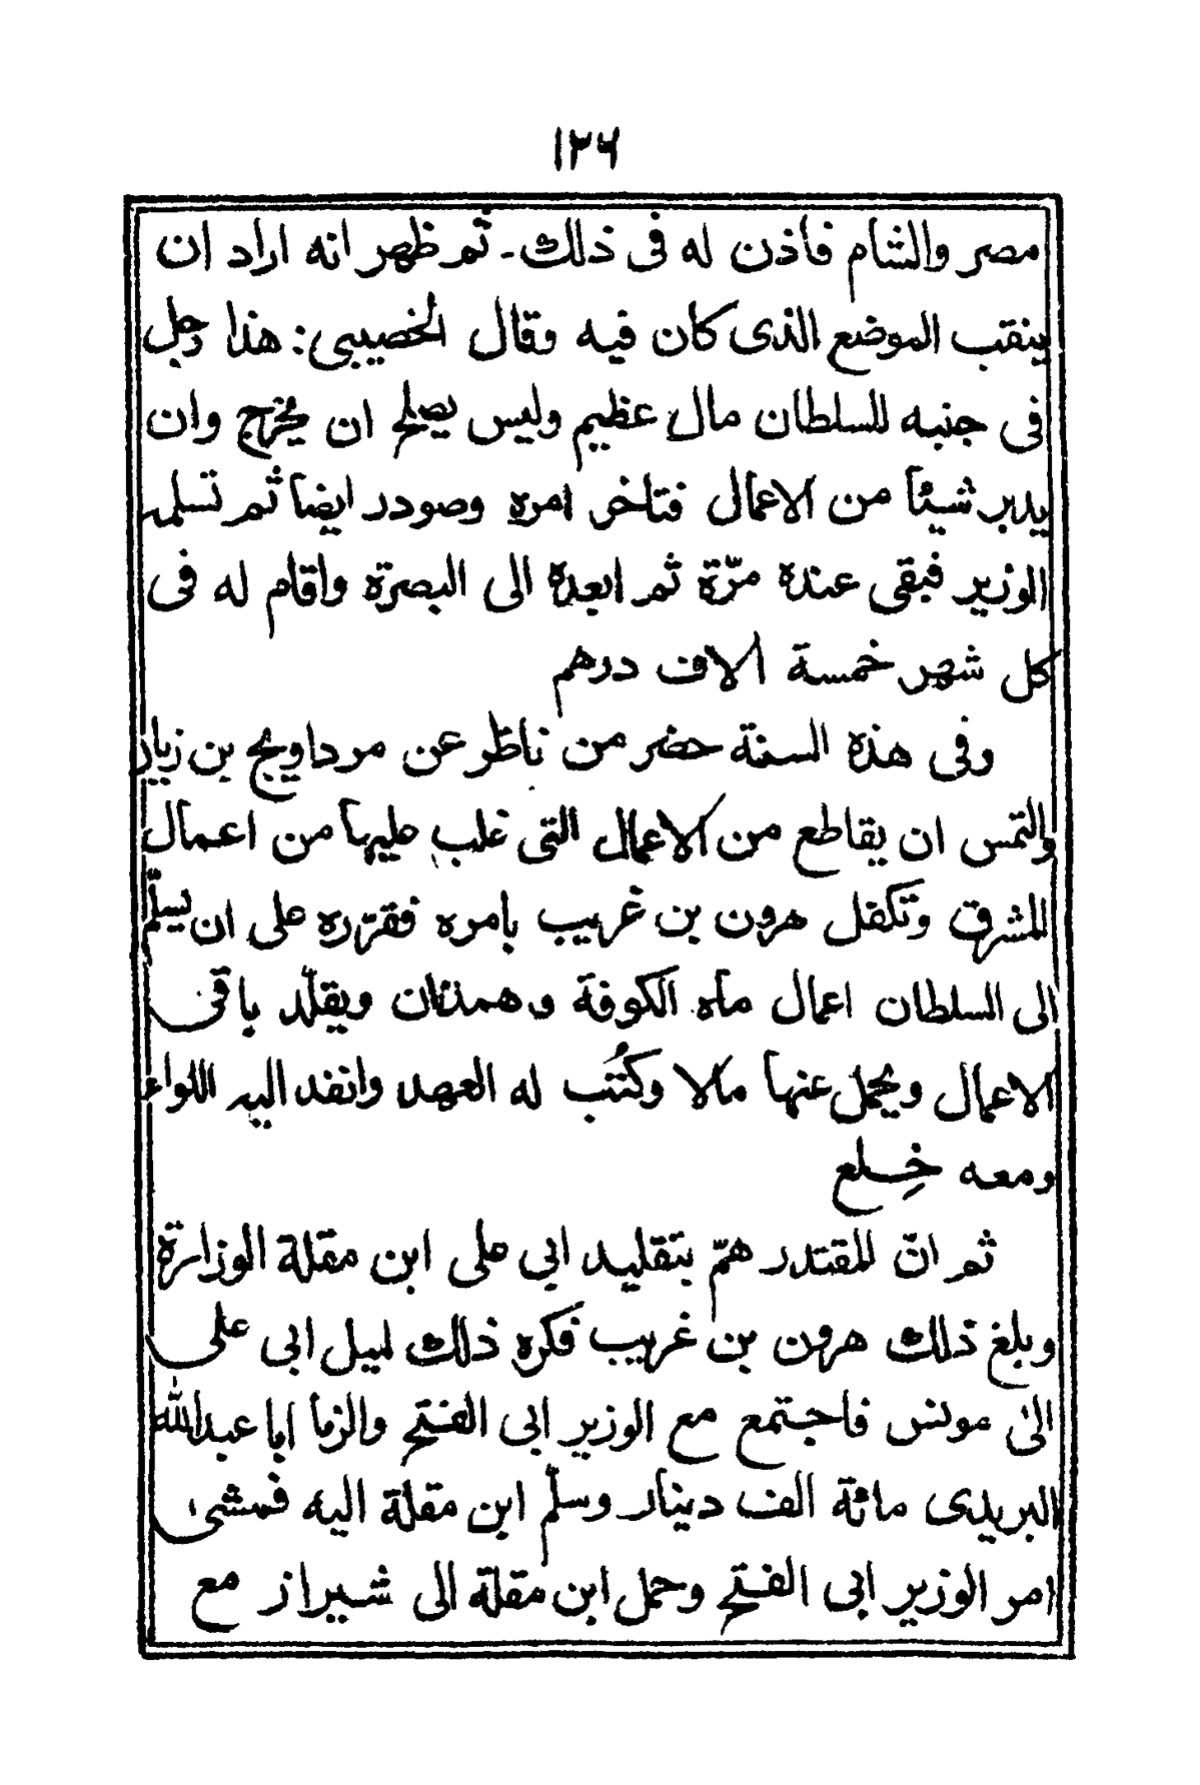 ١٢٦
مصر والشام فاذن له فى ذلك ـ ثم ظهر انه اراد ان
ينقب الموضع الذى كان فيه وقال الخصيبى: هذا رجل
فى جنبه للسلطان مال عظيم وليس يصلح ان يخرج وان
يدبر شيئا من الاعمال فتاخر امره وصودر ايضا ثم تسلمه
الوزير فبقى عنده مرّة ثم ابعده الى البصرة واقام له فى
كل شهر خمسة الاف درهم
وفى هذه السنة حضر من ناظر عن مرداويج بن زيار
والتمس ان يقاطع من الاعمال التى غلب عليها من اعمال
المشرق وتكفل هرون بن غريب بامره فقرّره على ان يسلّم
الى السلطان اعمال ماه الكوفة وهمذان ويقلّد باقى
الاعمال ويحمل عنها مالا وكُتب له العهد وانفذ اليه اللواء
ومعه خِلع
ثم انّ المقتدر همّ بتقليد ابي على ابن مقلة الوزارة
وبلغ ذلك هرون بن غريب فكره ذلك لميل ابى على
الى مونس فاجتمع مع الوزير ابى الفتح والزما ابا عبدالله
البريدى مائة الف دينار وسلّم ابن مقلة اليه فمشى
امر الوزير ابى الفتح وحمل ابن مقلة الى شيراز مع